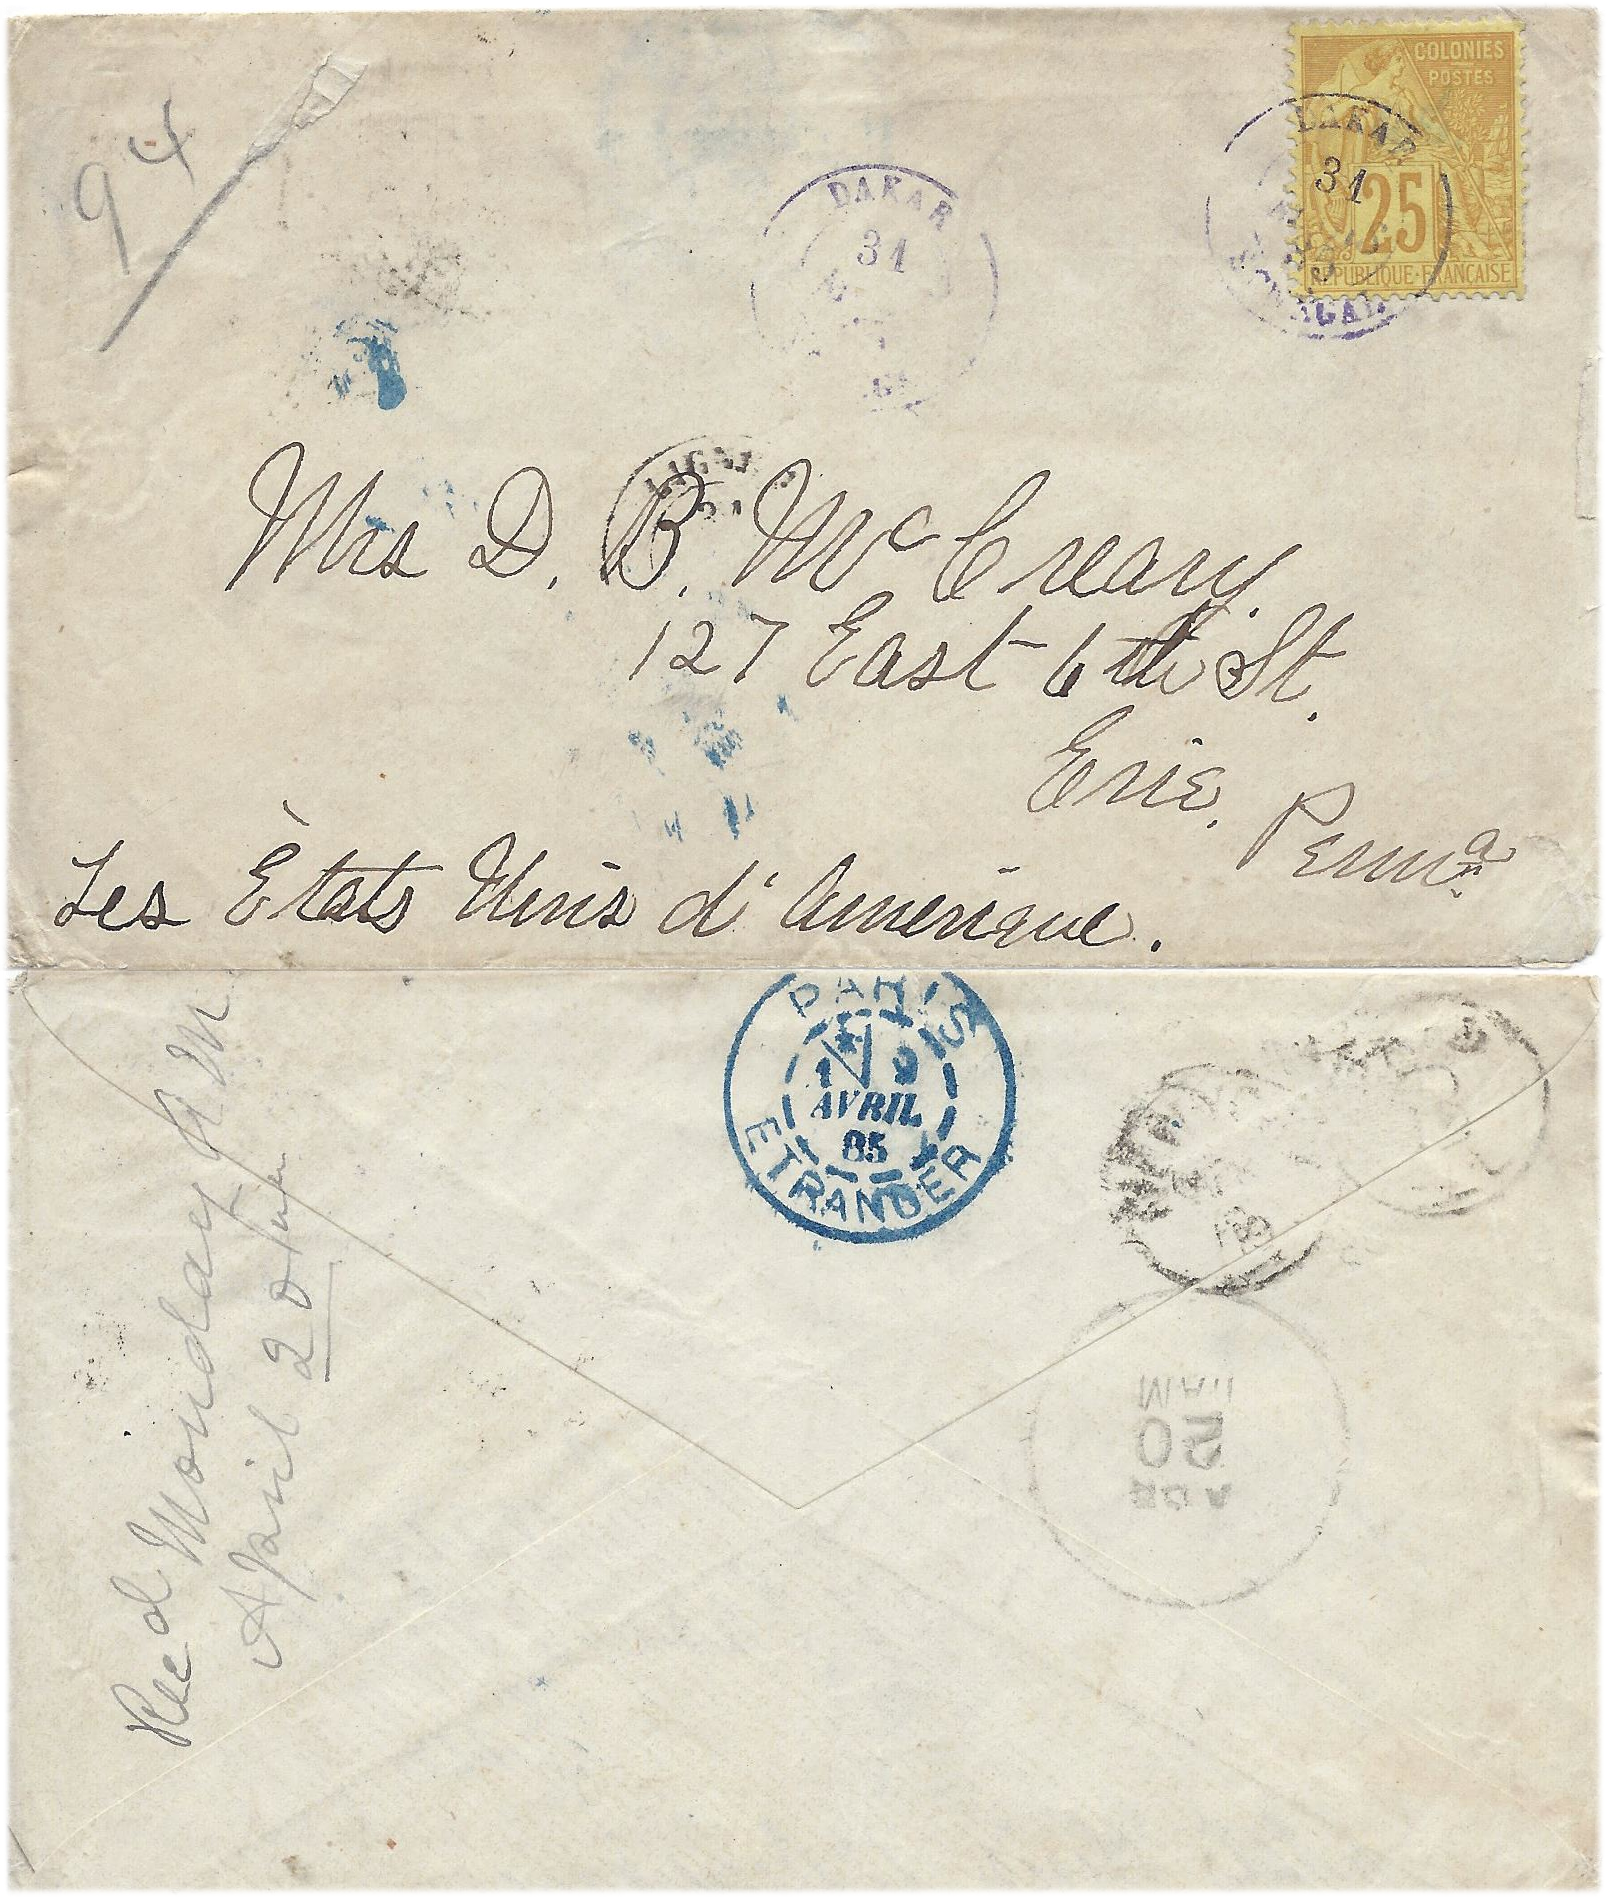 94
COLONIES
POSTES
25
REPUBLIQUE FRANÇAISE
DAKAR
31
DAKAR
31
LIGNE
Mrs D. B. McCreary.
127 East 6th St.
Erie, Penna
Les États Unis d'Amérique.
PARIS
1 9
AVRIL
85
ETRANGER
Rec d Monday A M
April 20
APR
20